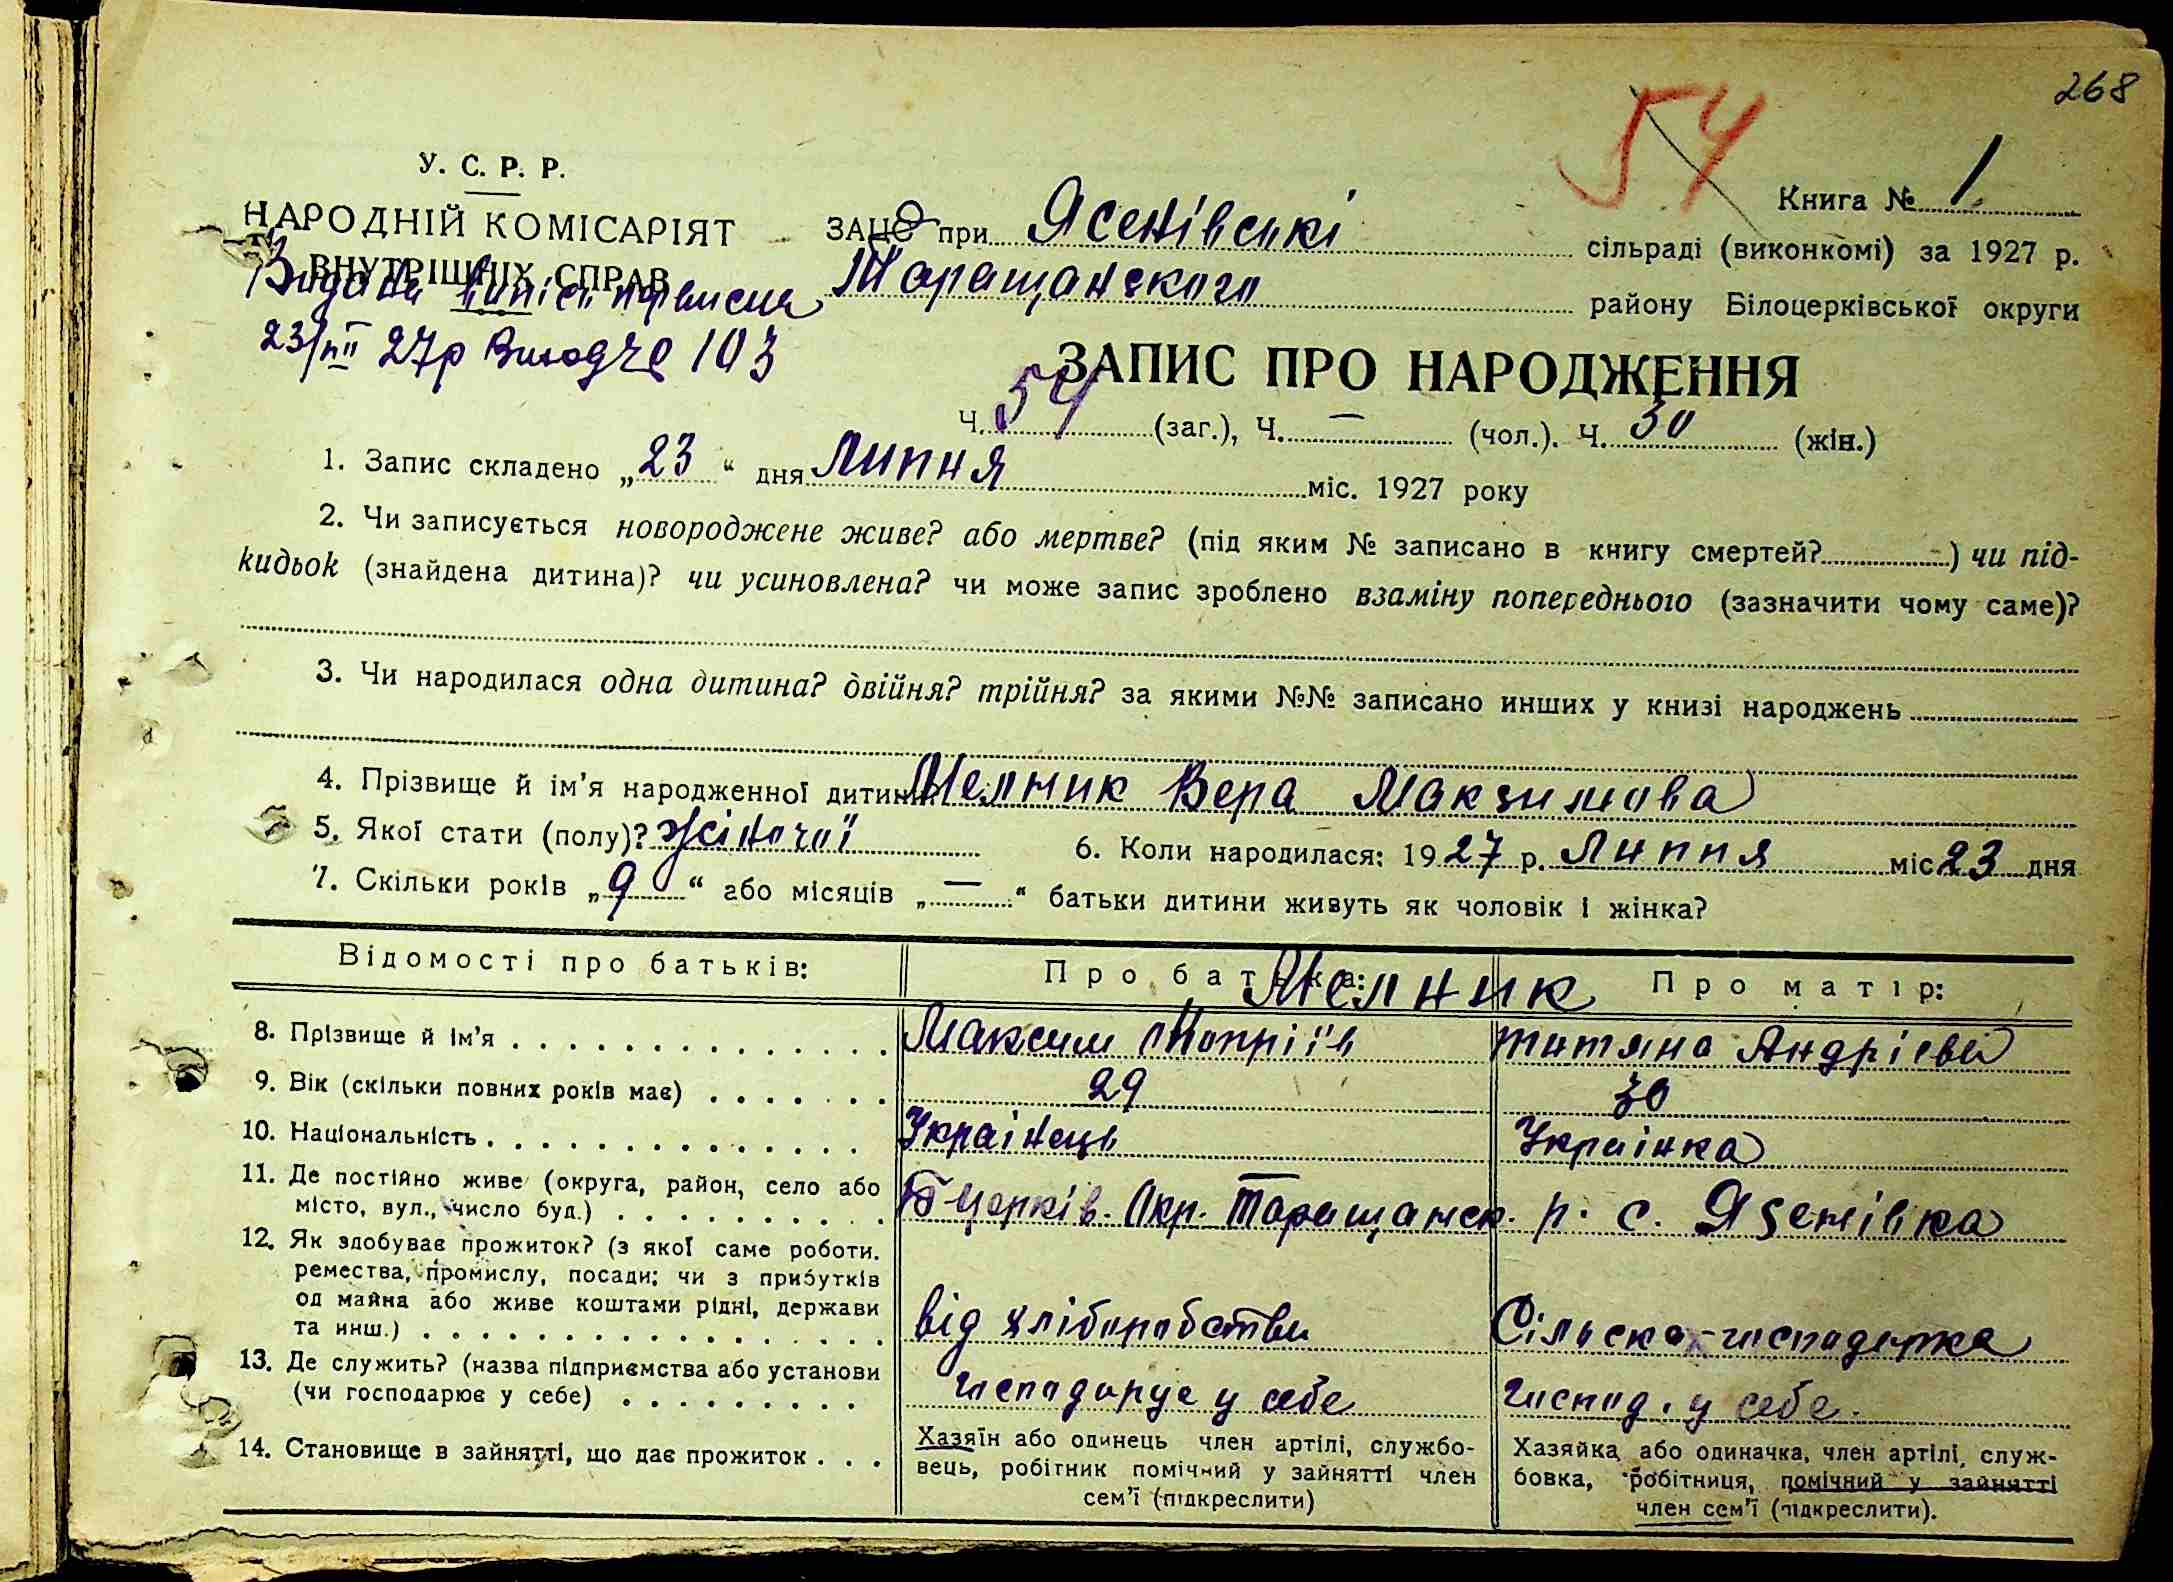 268
54
У. С. Р. Р.
НАРОДНІЙ КОМІСАРІЯТ
ВНУТРІШНІХ СПРАВ
Видана випісь
23/VII 27р 103
Книга № 1.
ЗАЦС при Ясенівскі сільраді (виконкомі) за 1927 р.
Таращанского району Білоцерківської округи
ЗАПИС ПРО НАРОДЖЕННЯ
Ч. 54 (заг.), Ч. — (чол.). Ч. 30 (жін.)
1. Запис складено „23“ дня Липня міс. 1927 року
2. Чи записується новороджене живе? або мертве? (під яким № записано в книгу смертей? -) чи під-
кидьок (знайдена дитина)? чи усиновлена? чи може запис зроблено взаміну попереднього (зазначити чому саме)?
3. Чи народилася одна дитина? двійня? трійня? за якими №№ записано инших у книзі народжень
4. Прізвище й ім’я народженної дитини Мелник Вера Макзимова
5. Якої стати (полу)? жіночої 6. Коли народилася: 1927 р. Липня міс 23 дня
7. Скільки років „9“ або місяців „—“ батьки дитини живуть як чоловік і жінка?
Відомості про батьків: Про батька: Мелник Про матір:
8. Прізвище й ім’я Максим Татяна Андрієва
9. Вік (скільки повних років має) 29 30
10. Національність Українець Українка
11. Де постійно живе (округа, район, село або
місто, вул., число буд.) Б-Церків. Окр. Таращанск. р. с. Язенівка
12. Як здобуває прожиток? (з якої саме роботи.
ремества, промислу, посади; чи з прибутків
од майна або живе коштами рідні, держави
та инш.) від хліборобства Сільска-господарка
13. Де служить? (назва підприємства або установи
(чи господарює у себе) господарує у себе господ. у себе.
14. Становище в зайнятті, що дає прожиток
Хазяїн або одинець член артілі, службо-
вець, робітник помічний у зайнятті член
сем’ї (підкреслити)
Хазяйка або одиначка, член артілі, служ-
бовка, робітниця, помічний у зайнятті
член сем’ї (підкреслити).